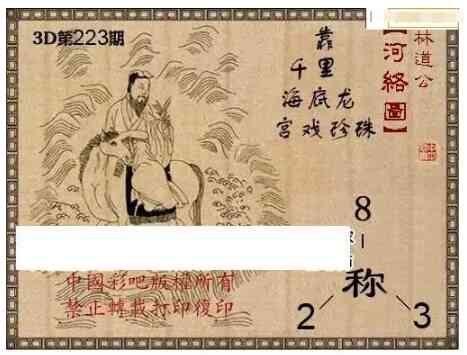 3D第223期
靠
千里
海底龙
宫戏珍珠
林道公
【河絡圖】
8
称
2
3
中國彩吧版權所有
禁止轉載打印復印